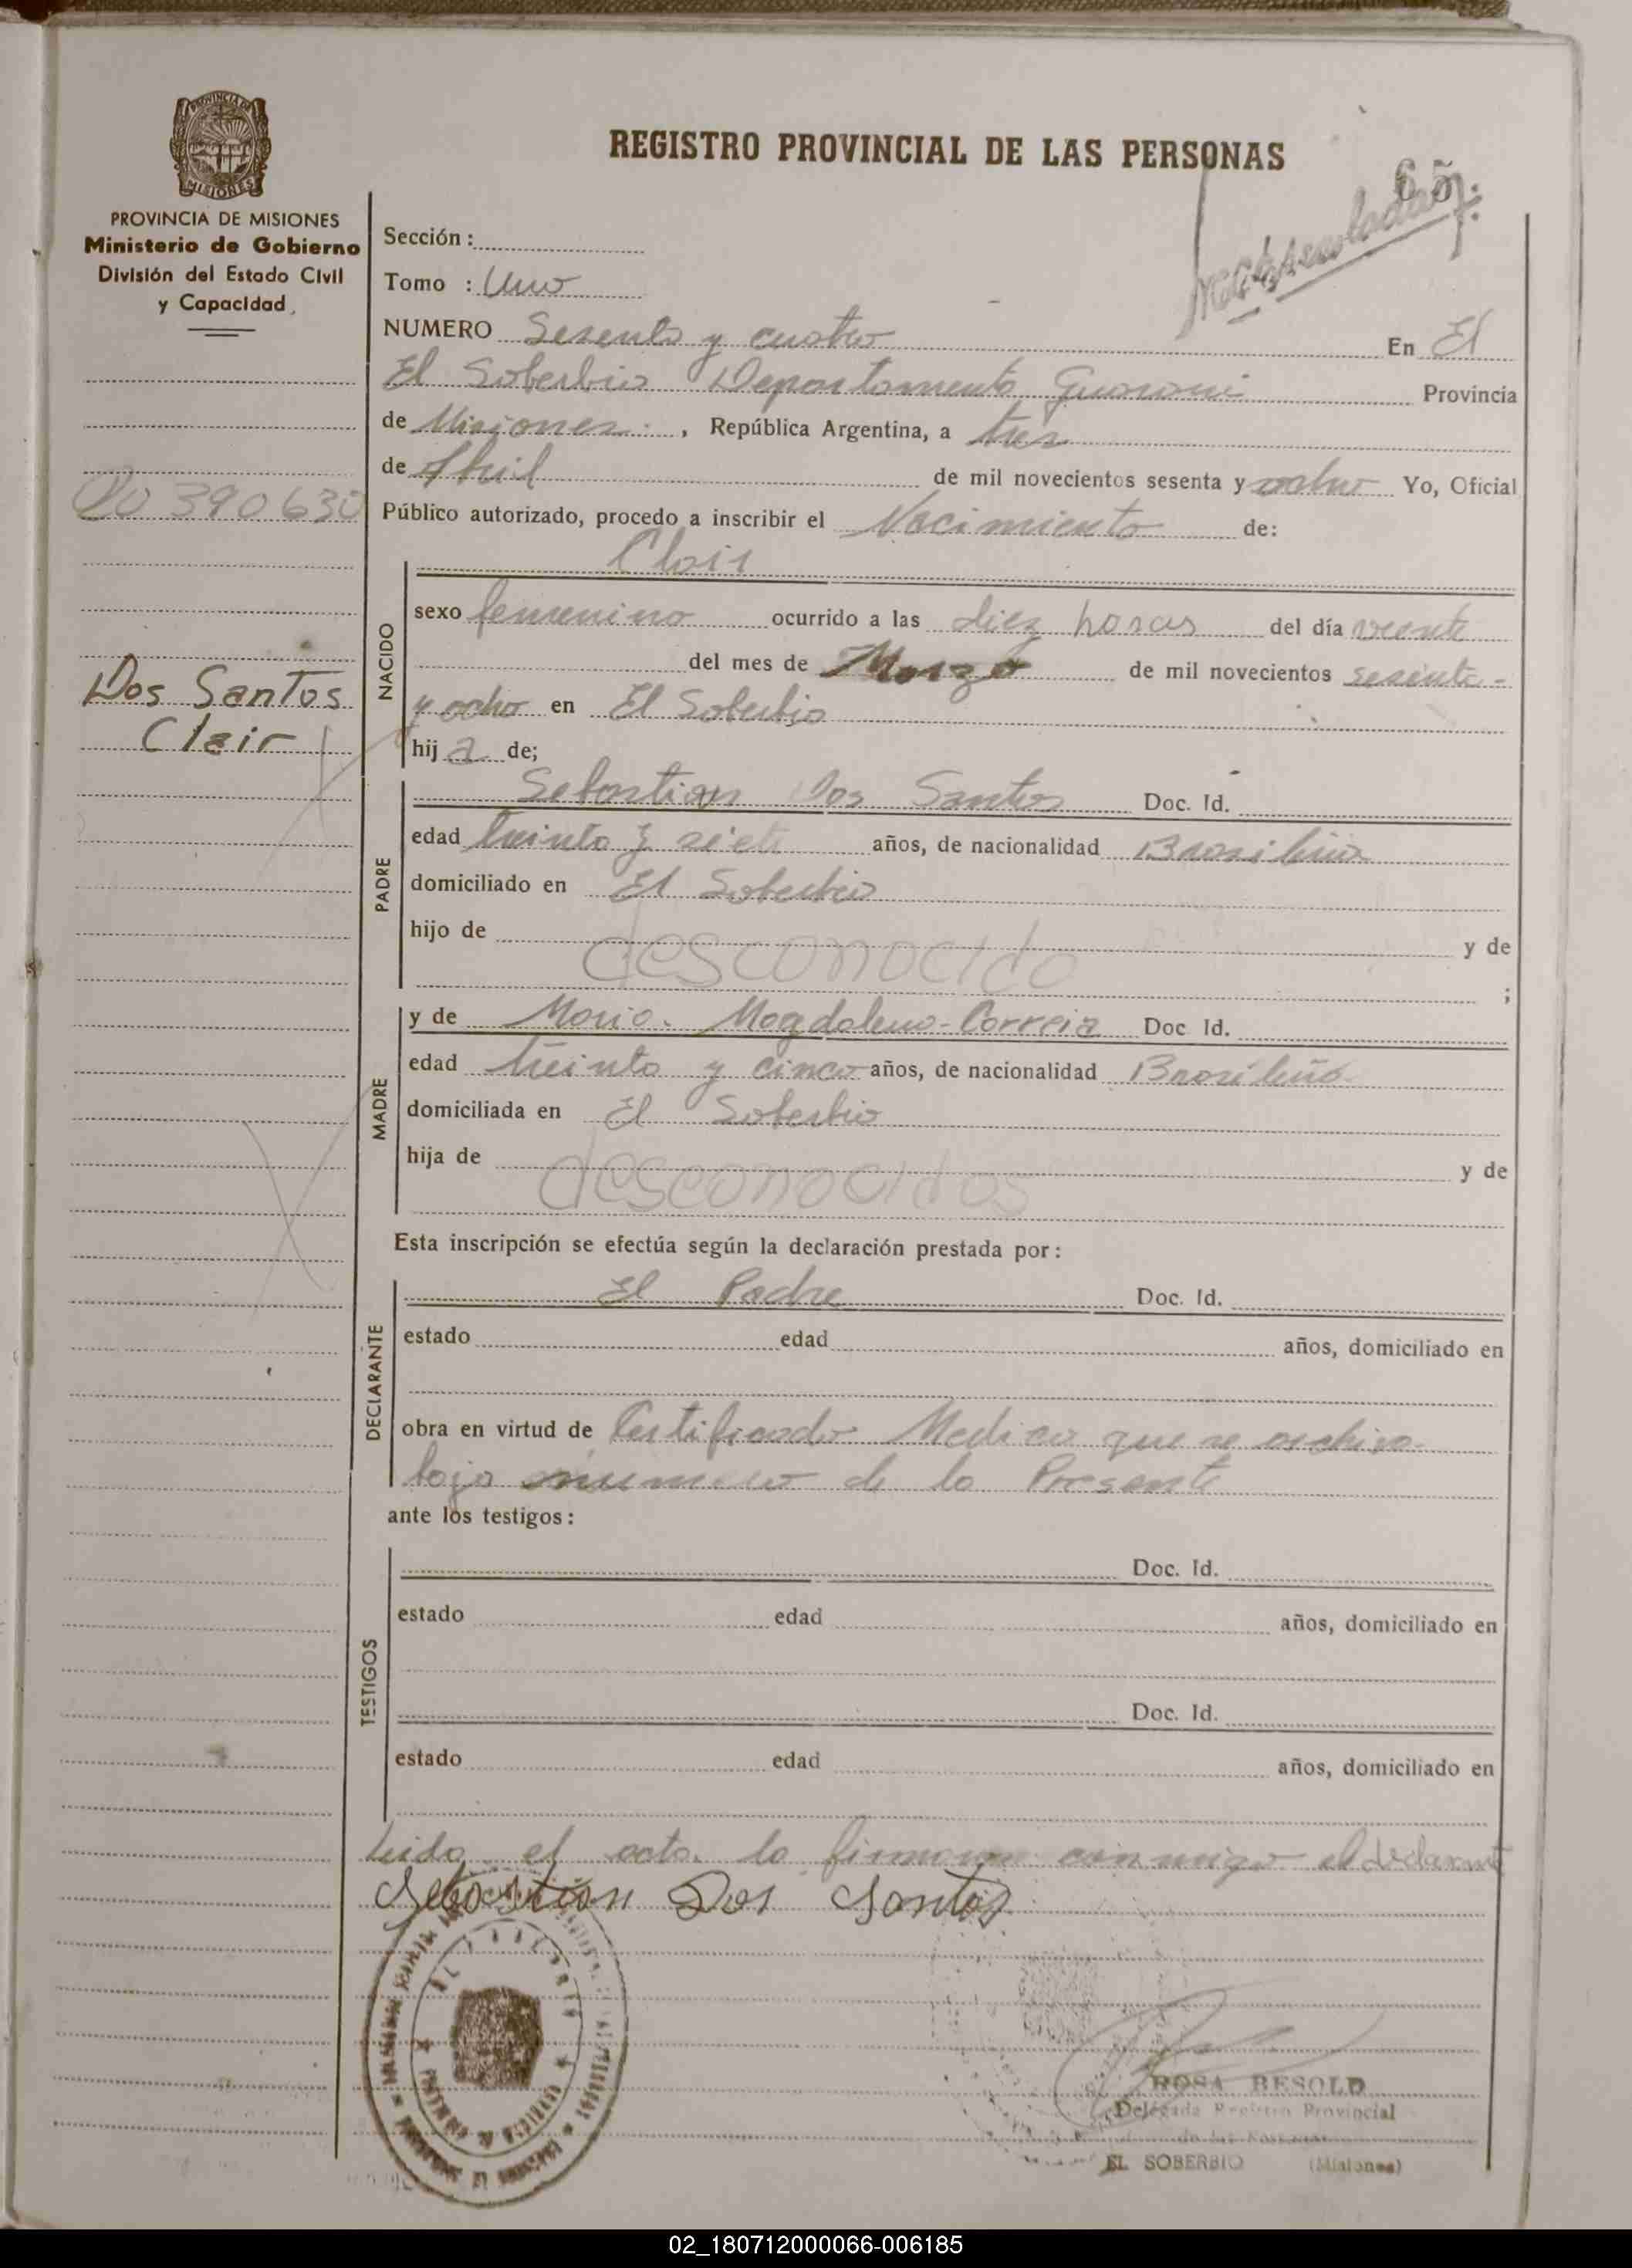 PROVINCIA DE MISIONES
PROVINCIA DE MISIONES
Ministerio de Gobierno
División del Estado Civil
y Capacidad
REGISTRO PROVINCIAL DE LAS PERSONAS
65
Sección :
Tomo : Uno
NUMERO Sesenta y cuatro En El
El Soberbio Departamento Guarani Provincia
de Misiones , República Argentina, a tres
de Abril de mil novecientos sesenta y ocho Yo, Oficial
20 390 630
Público autorizado, procedo a inscribir el Nacimiento de:
Clair
NACIDO
sexo femenino ocurrido a las diez horas del día veinte
del mes de Marzo de mil novecientos sesenta -
y ocho en El Soberbio
Dos Santos
Clair
hij a de;
PADRE
Sebastian Dos Santos Doc. Id.
edad treinta y siete años, de nacionalidad Brasileña
domiciliado en El Soberbio
hijo de desconocido y de
;
MADRE
y de Maria Magdalena Correia Doc Id.
edad treinta y cinco años, de nacionalidad Brasileña
domiciliada en El Soberbio
hija de desconocidos y de
Esta inscripción se efectúa según la declaración prestada por :
DECLARANTE
El Padre Doc. Id.
estado edad años, domiciliado en
obra en virtud de Certificado Medico que se archiva
bajo numero de la Presente
ante los testigos :
TESTIGOS
Doc. Id.
estado edad años, domiciliado en
Doc. Id.
estado edad años, domiciliado en
Leida el acta la firman conmigo el declarante
Sebastian Dos Santos
ROSA BESOLD
Delegada Registro Provincial
de las Personas
EL SOBERBIO (Misiones)
02_180712000066-006185